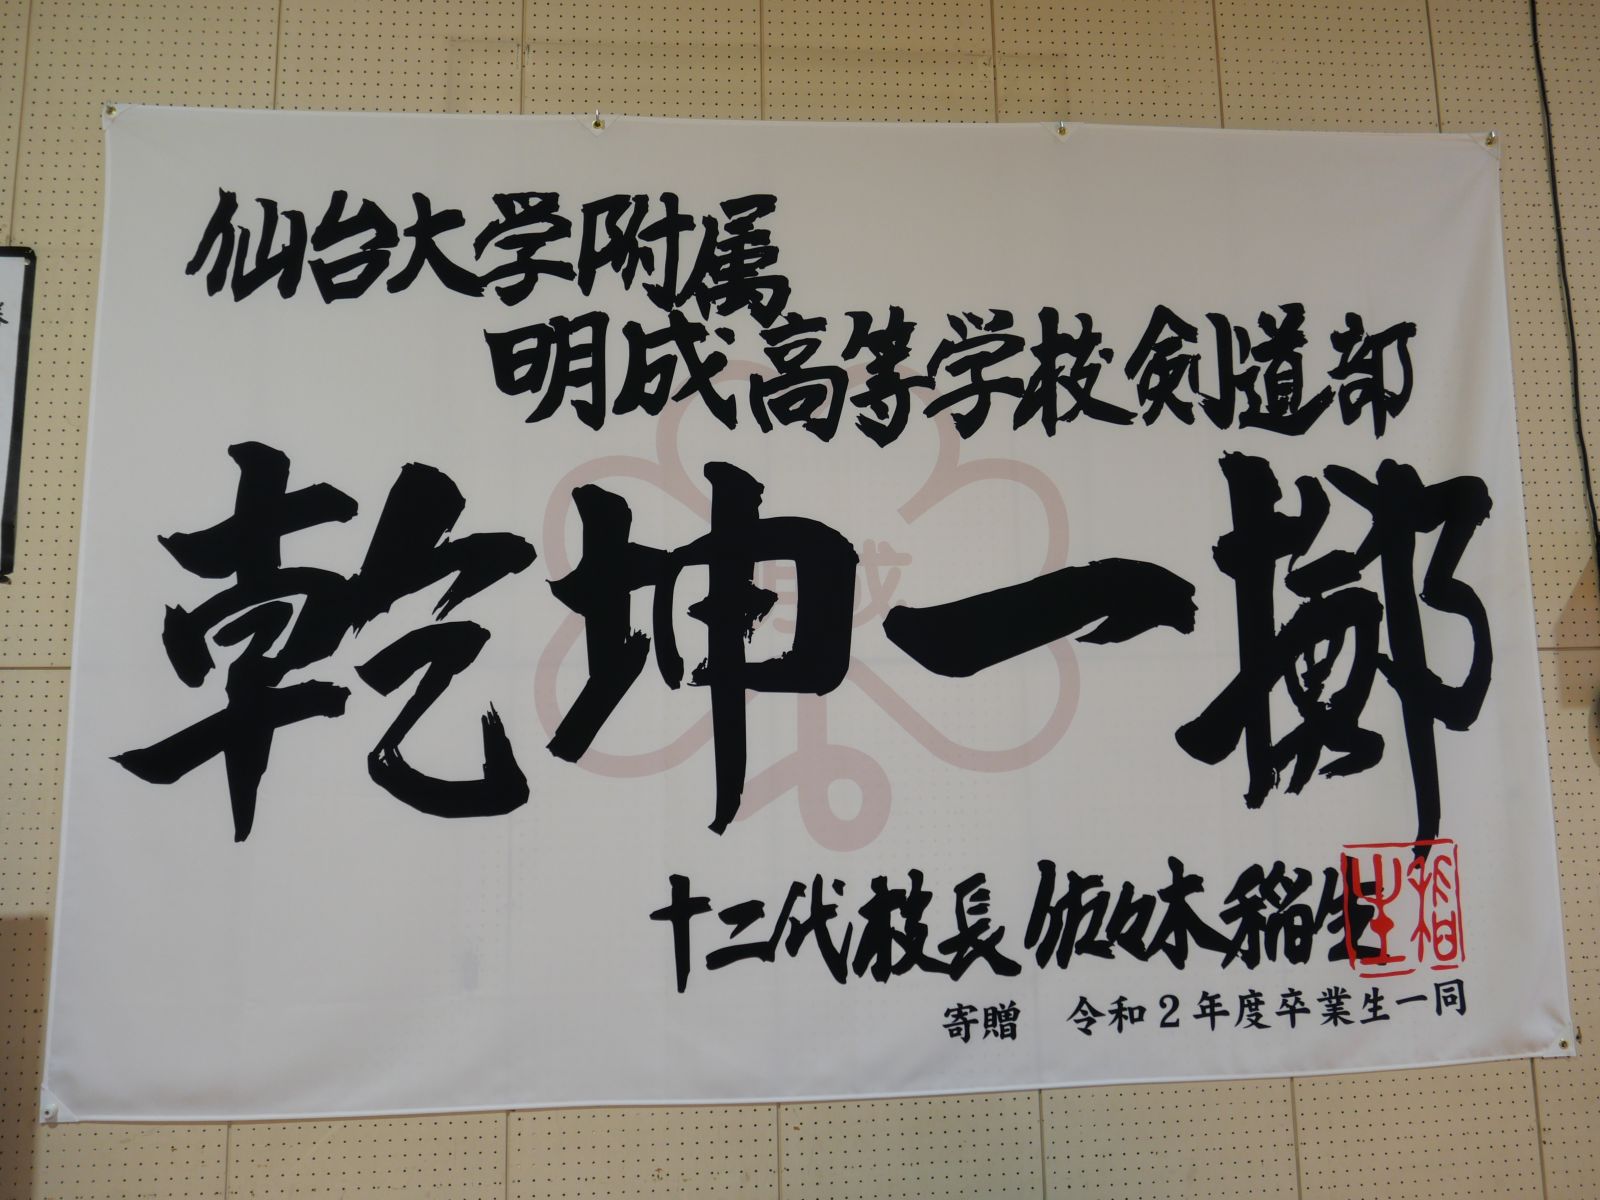 仙台大学附属
明成高等学校剣道部
乾坤一擲
十二代校長 佐々木稲生
稲生
寄贈 令和2年度卒業生一同
明成